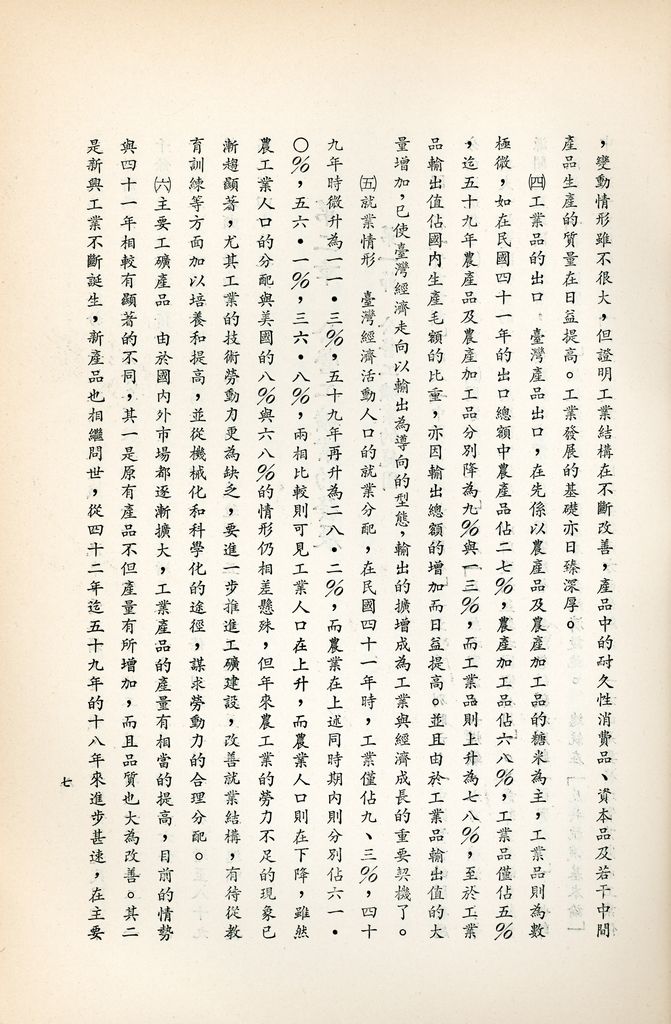 ，變動情形雖不很大，但證明工業結構在不斷改善，產品中的耐久性消費品、資本品及若干中間
產品生產的質量在日益提高。工業發展的基礎亦日臻深厚。
㈣工業品的出口　臺灣產品出口，在先係以農產品及農產加工品的糖米為主，工業品則為數
極微，如在民國四十一年的出口總額中農產品佔二七％，農產加工品佔六八％，工業品僅佔五％
，迄五十九年農產品及農產加工品分別降為九％與一三％，而工業品則上升為七八％，至於工業
品輸出值佔國內生產毛額的比重，亦因輸出總額的增加而日益提高。並且由於工業品輸出值的大
量增加，已使臺灣經濟走向以輸出為導向的型態，輸出的擴增成為工業與經濟成長的重要契機了。
㈤就業情形　臺灣經濟活動人口的就業分配，在民國四十一年時，工業僅佔九、三％，四十
九年時微升為一一・三％，五十九年再升為二八・二％，而農業在上述同時期內則分別佔六一・
〇％，五六・一％，三六・八％，兩相比較則可見工業人口在上升，而農業人口則在下降，雖然
農工業人口的分配與美國的八％與六八％的情形仍相差懸殊，但年來農工業的勞力不足的現象已
漸趨顯著，尤其工業的技術勞動力更為缺乏，要進一步推進工礦建設，改善就業結構，有待從教
育訓練等方面加以培養和提高，並從機械化和科學化的途徑，謀求勞動力的合理分配。
㈥主要工礦產品　由於國內外市場都逐漸擴大，工業產品的產量有相當的提高，目前的情勢
與四十一年相較有顯著的不同，其一是原有產品不但產量有所增加，而且品質也大為改善。其二
是新興工業不斷誕生，新產品也相繼問世，從四十二年迄五十九年的十八年來進步甚速，在主要
七